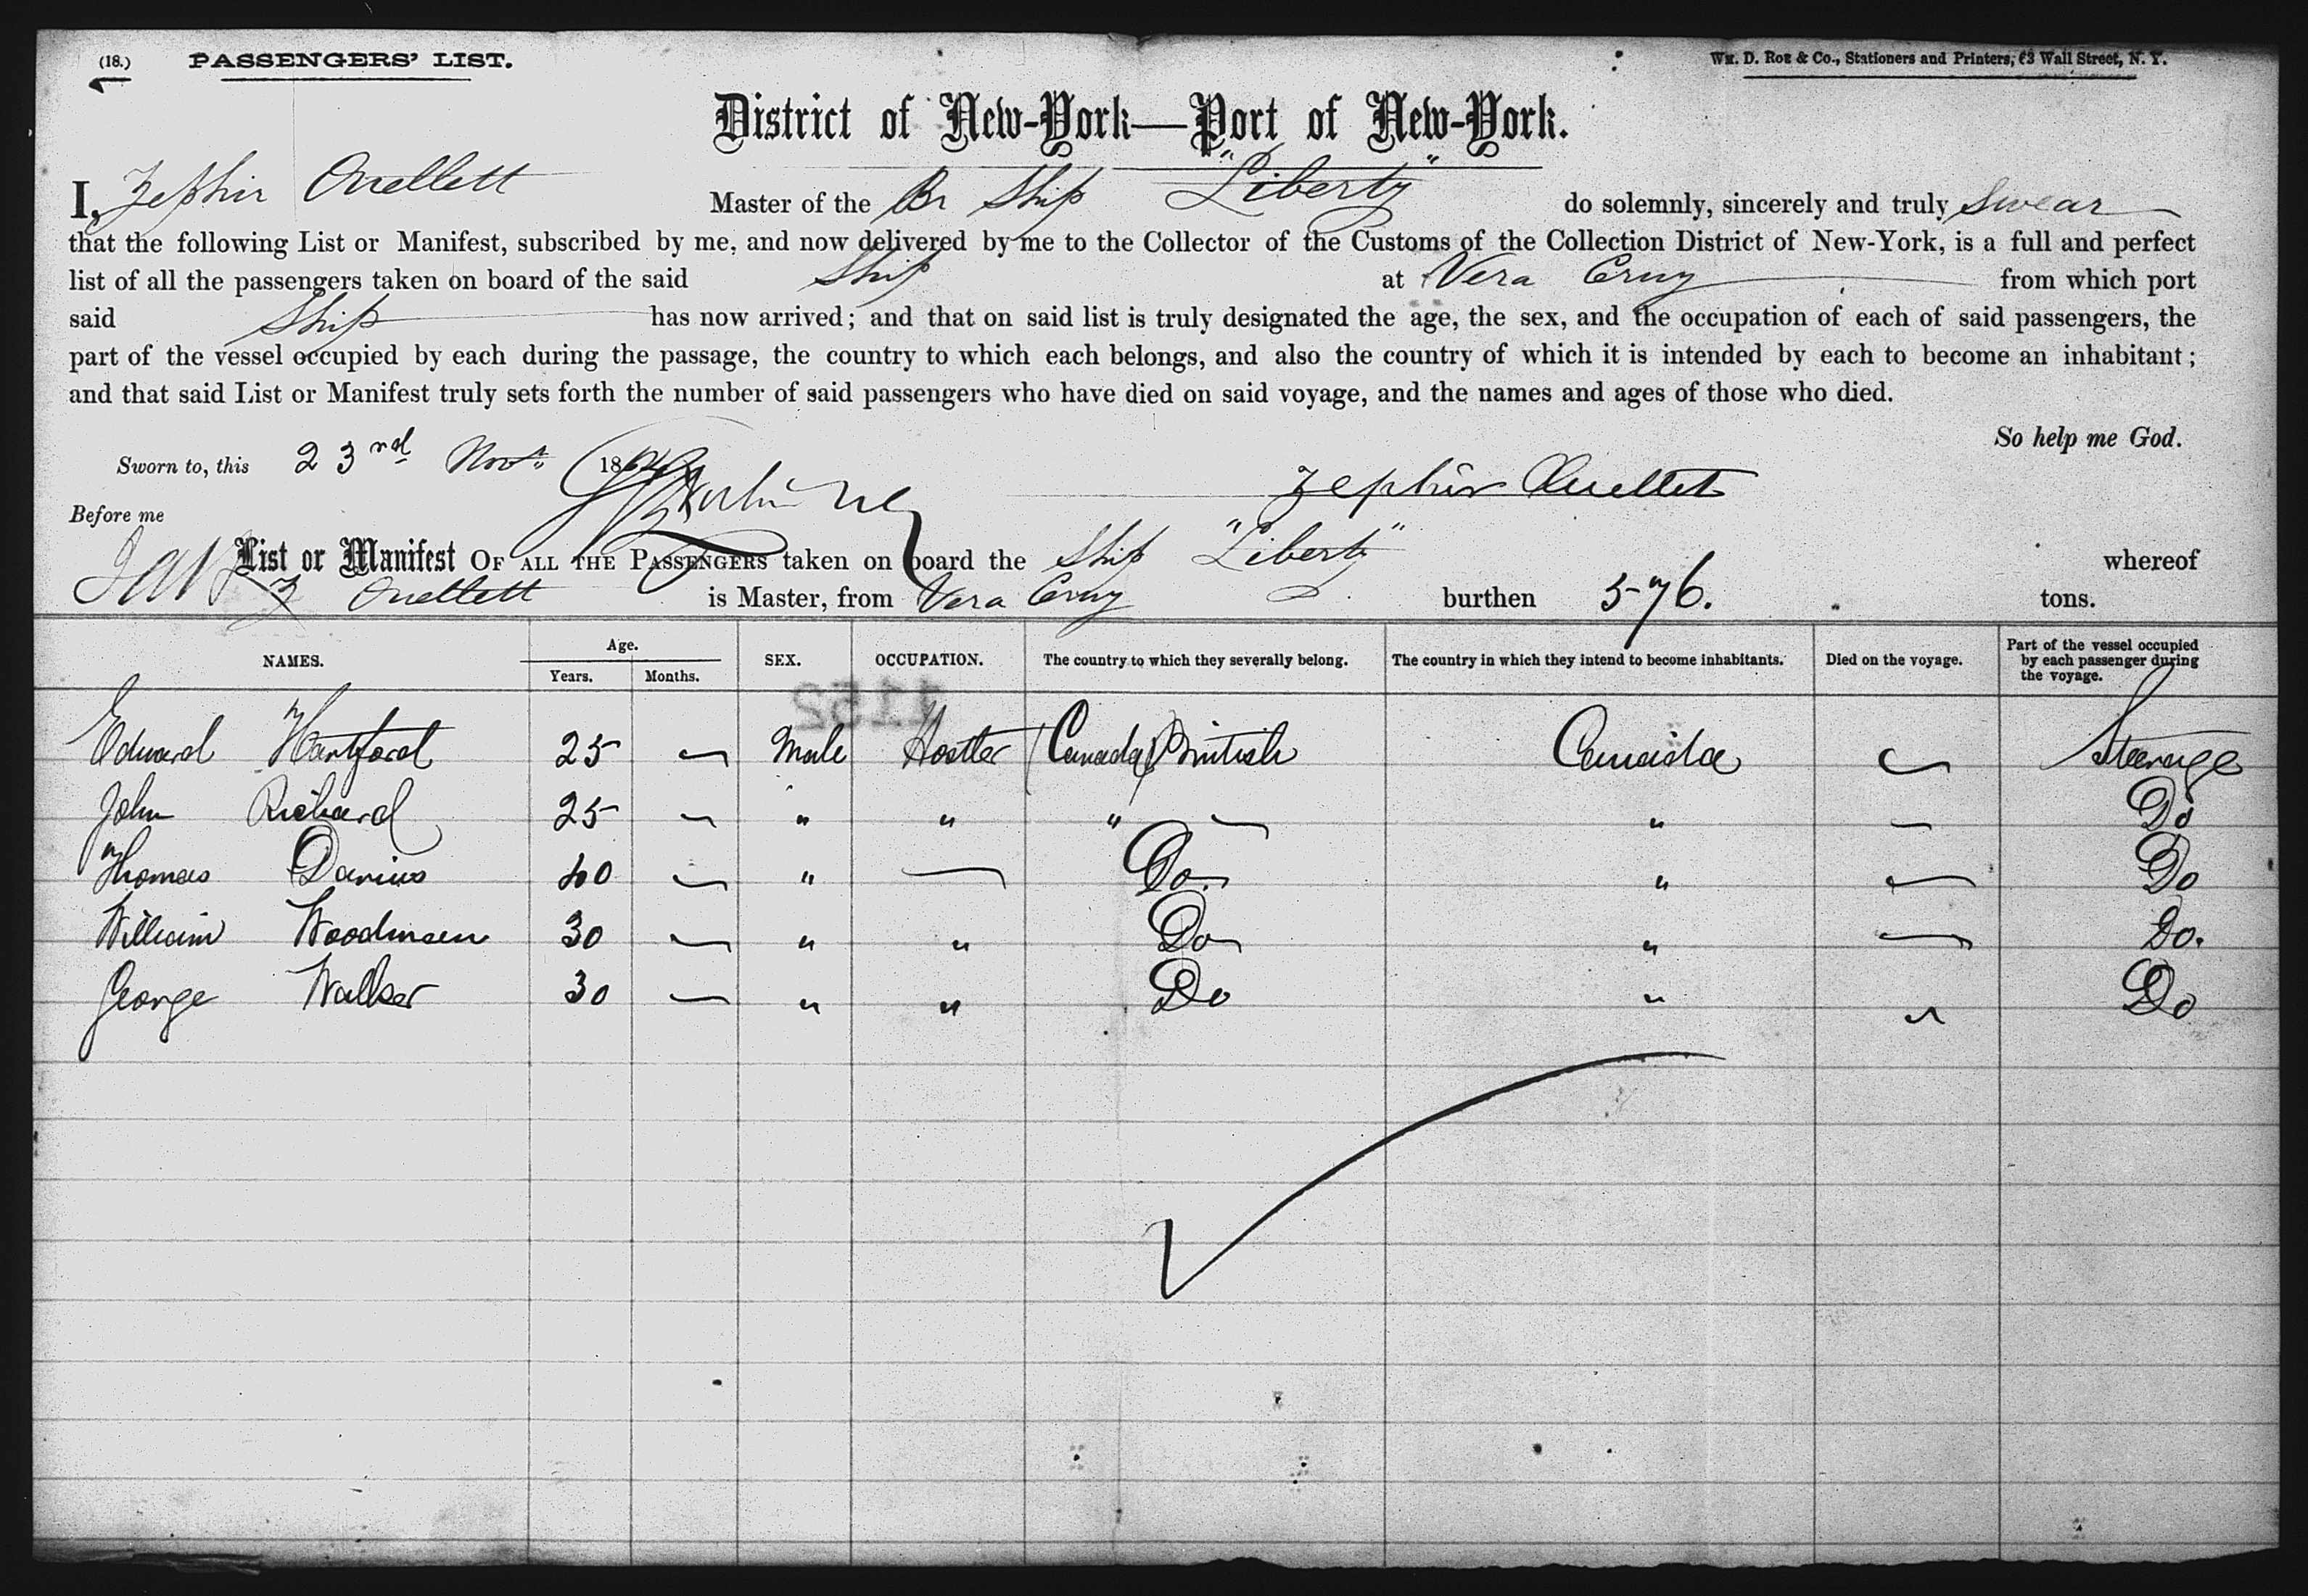 (18.) PASSENGERS' LIST. Wm. D. Roe & Co., Stationers and Printers, 63 Wall Street, N. Y.
District of New-York—Port of New-York.
I, Zephir Ouellett Master of the Br Ship "Liberty" do solemnly, sincerely and truly swear
that the following List or Manifest, subscribed by me, and now delivered by me to the Collector of the Customs of the Collection District of New-York, is a full and perfect
list of all the passengers taken on board of the said Ship at Vera Cruz from which port
said Ship has now arrived; and that on said list is truly designated the age, the sex, and the occupation of each of said passengers, the
part of the vessel occupied by each during the passage, the country to which each belongs, and also the country of which it is intended by each to become an inhabitant;
and that said List or Manifest truly sets forth the number of said passengers who have died on said voyage, and the names and ages of those who died.
So help me God.
Sworn to, this 23rd Nov. 18
Zephir Ouellet
Before me
List or Manifest OF ALL THE PASSENGERS taken on board the Ship "Liberty" whereof
Z Ouellett is Master, from Vera Cruz burthen 576. tons.
NAMES. Age. Years. Months. SEX. OCCUPATION. The country to which they severally belong. The country in which they intend to become inhabitants. Died on the voyage. Part of the vessel occupied by each passenger during the voyage.
1152
Edward Hartford 25 — Male Hostler (Canada) British Canada — Steerage
John Richard 25 — " " " — " — Do
Thomas Darius 40 — " — Do. " — Do
William Woodman 30 — " " Do " — Do.
George Walker 30 — " " Do " " Do